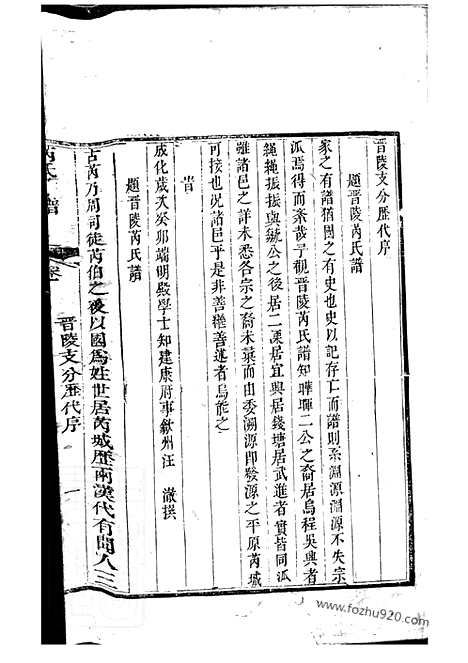 晋陵支分歷代序
題晋陵芮氏譜
家之有譜猶國之有史也史以記存亡而譜則系淵源淵源不失宗
派焉得而紊哉予觀晋陵芮氏譜知曄暉二公之裔居烏程吳興者
繩繩振振與毓公之後居二栗居宜興居錢塘居武進者實皆同派
雖諸邑之詳未悉各宗之裔未蓂而由委溯源即發源之平原芮城
可接也况諸邑乎是非善繼善述者烏能之
旹
成化歲次癸卯端明殿學士知建康府事歙州汪 澈撰
題晋陵芮氏譜
古芮乃周司徒芮伯之後以國為姓世居芮城歷兩漢代有聞人三
芮氏譜
晋陵支分歷代序
一
www.fozhu920.com